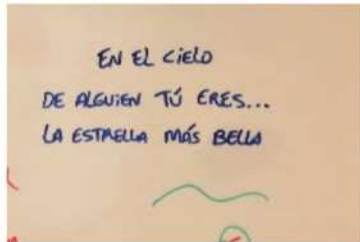 EN EL CIELO
DE ALGUIEN TÚ ERES...
LA ESTRELLA MÁS BELLA